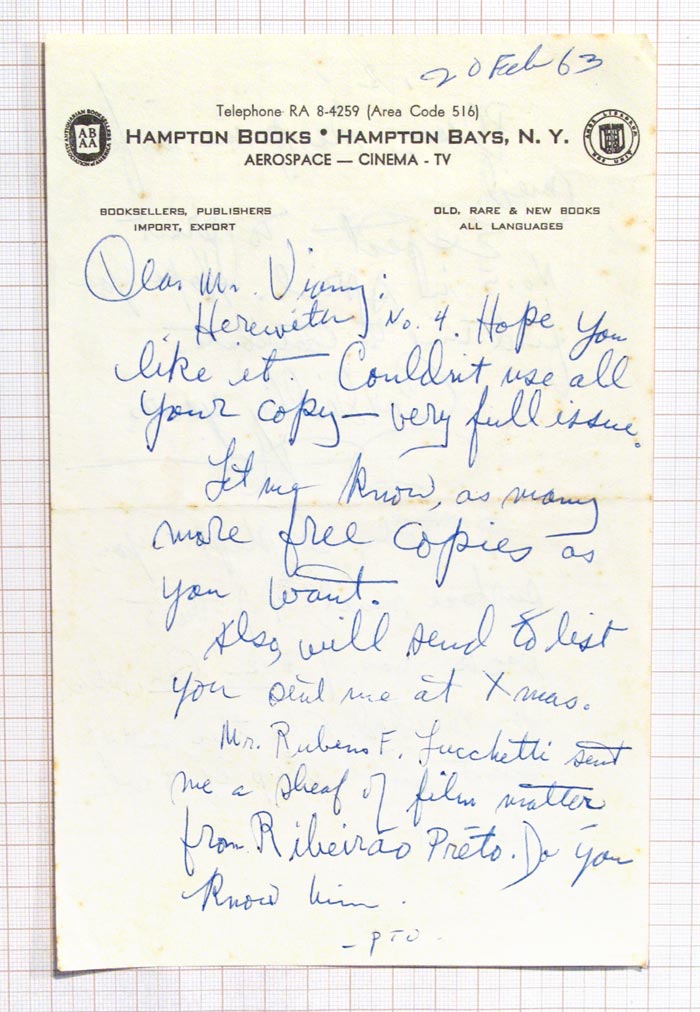 20 Feb 63
Telephone RA 8-4259 (Area Code 516)
HAMPTON BOOKS • HAMPTON BAYS, N. Y.
AEROSPACE — CINEMA - TV
ABAA
BOOKSELLERS, PUBLISHERS
IMPORT, EXPORT
OLD, RARE & NEW BOOKS
ALL LANGUAGES
Dear Mr. Viany:
Herewith No. 4. Hope you
like it. Couldn't use all
your copy — very full issue.
Let me know, as many
more free copies as
you want.
Also, will send to list
you sent me at Xmas.
Mr. Rubens F. Lucchetti sent
me a sheaf of film matter
from Ribeirão Prêto. Do you
know him.
- PTO -